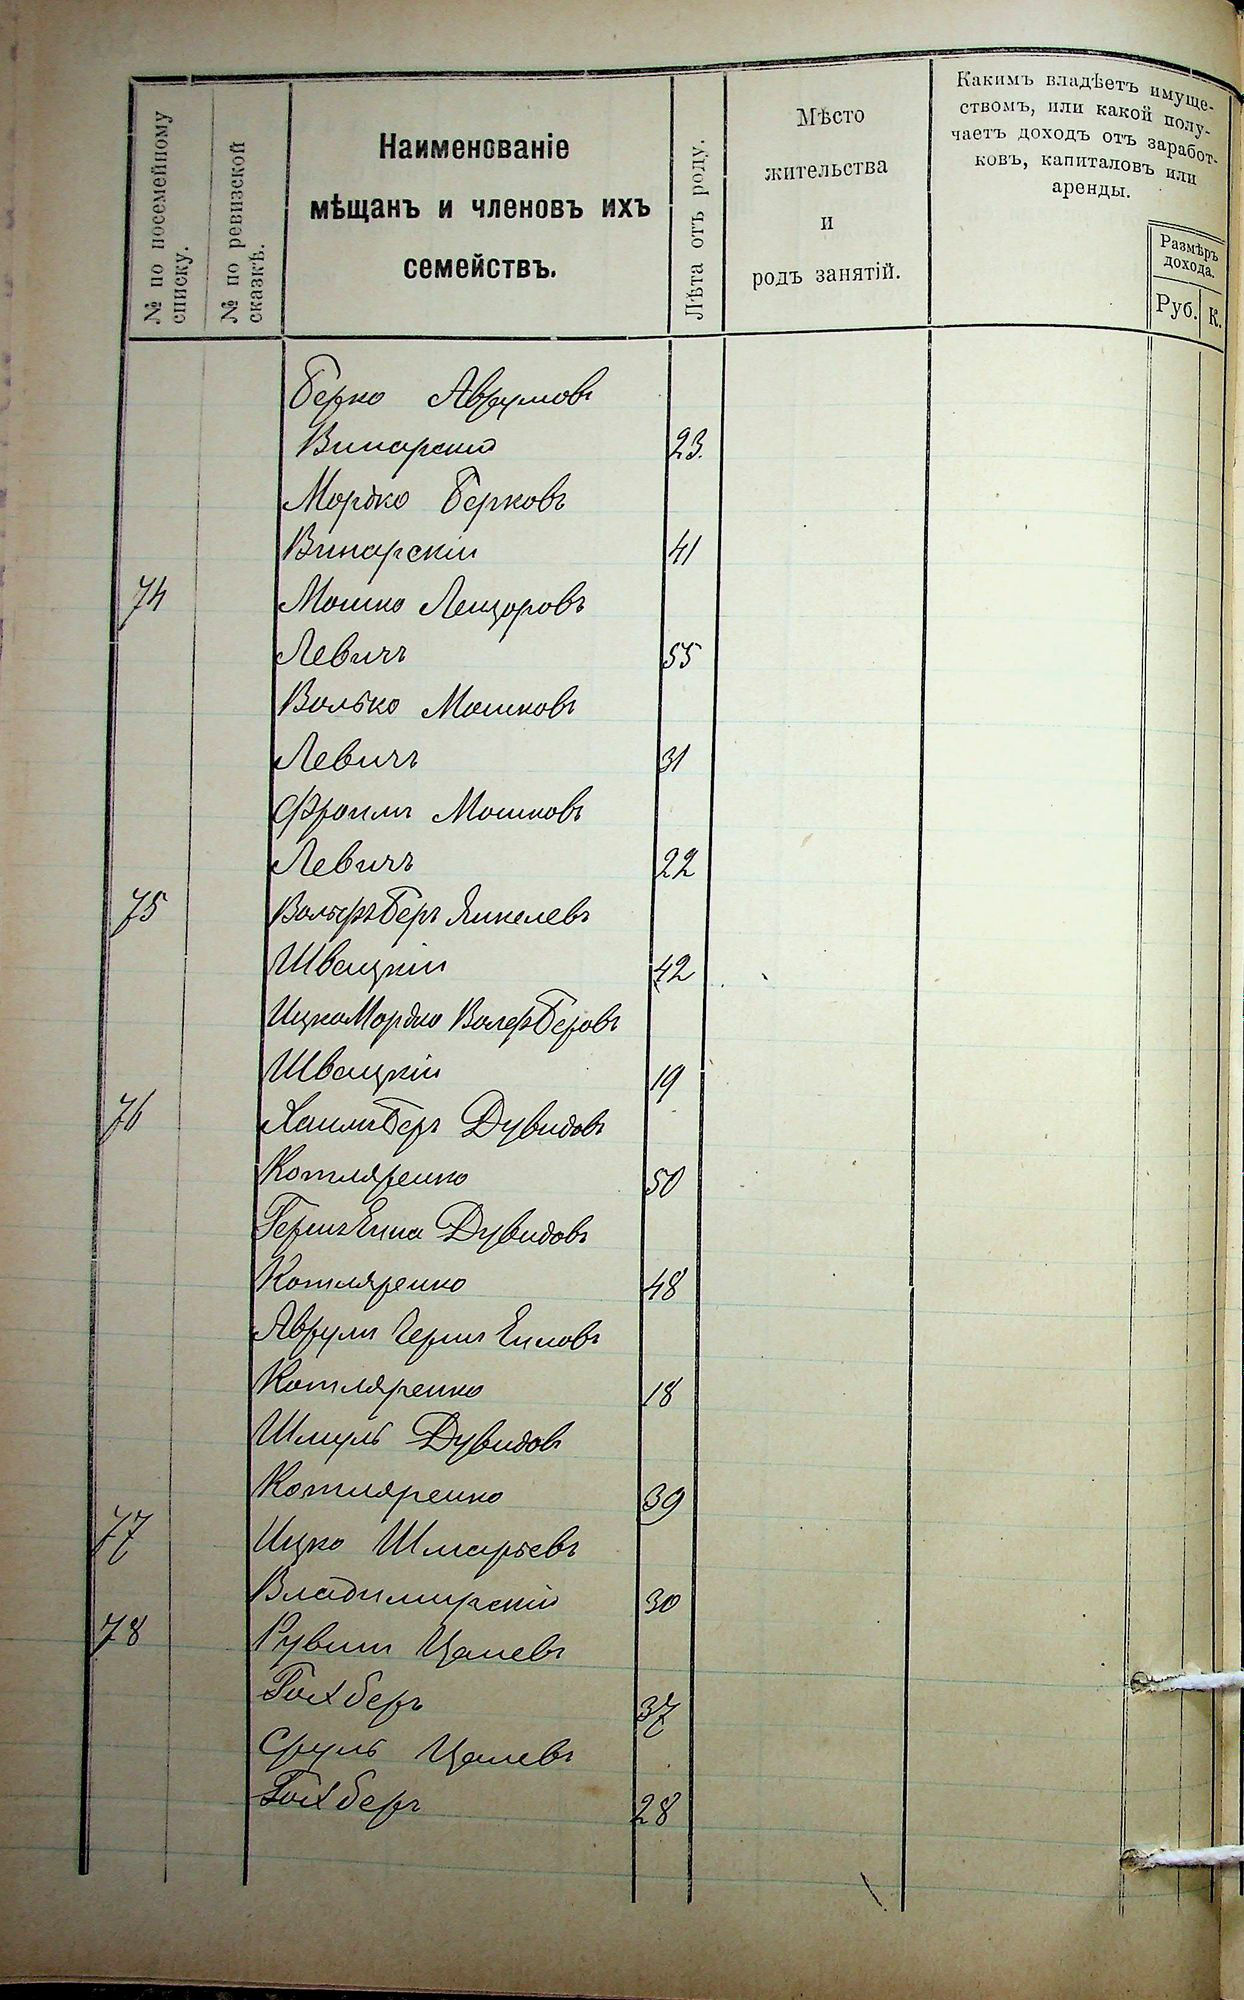 № по посемейному
списку.
№ по ревизской
сказкѣ.
Наименованіе
мѣщанъ и членовъ ихъ
семействъ.
Лѣта отъ роду.
Мѣсто
жительства
и
родъ занятій.
Какимъ владѣетъ имуще-
ствомъ, или какой полу-
чаетъ доходъ отъ заработ-
ковъ, капиталовъ или
аренды.
Размѣръ
дохода.
Руб. К.
Берко Аврумовъ
Винарскій 23
Мордко Берковъ
Винарскій 41
74 Мошко Лейзоровъ
Левичъ 55
Волько Мошковъ
Левичъ 31
Фроимъ Мошковъ
Левичъ 22
75 Вольфъ Беръ Янкелевъ
Швацкій 42
Ицко Мордко Вольф Беровъ
Швацкій 19
76 Хаимъ Беръ Дувидовъ
Котляренко 50
Гершъ Дувидовъ
Котляренко 48
Аврумъ Гершъ
Котляренко 18
Шмуль Дувидовъ
Котляренко 39
77 Ицко Шмарьевъ
Владимирскій 30
78 Рувинъ Цалевъ
Гохберъ 37
Сруль Цалевъ
Гохберъ 28